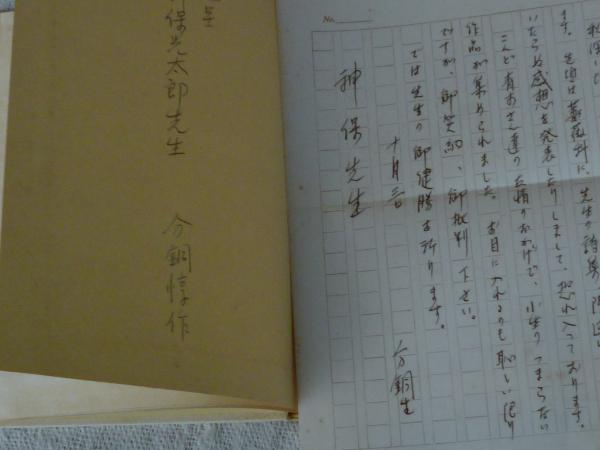 神保光太郎先生
分銅惇作
No.
ます。先週は薔薇科に、先生の詩集
いたらぬ感想を発表したりしまして、恐れ入っております。
こんど真壁さん達の友情のおかげで、小生のつまらない
作品が集められました。お目に入れるのも恥しい限り
ですが、御笑納、御批判下さい。
では先生の御健勝を祈ります。
十月三日
神保先生
分銅生